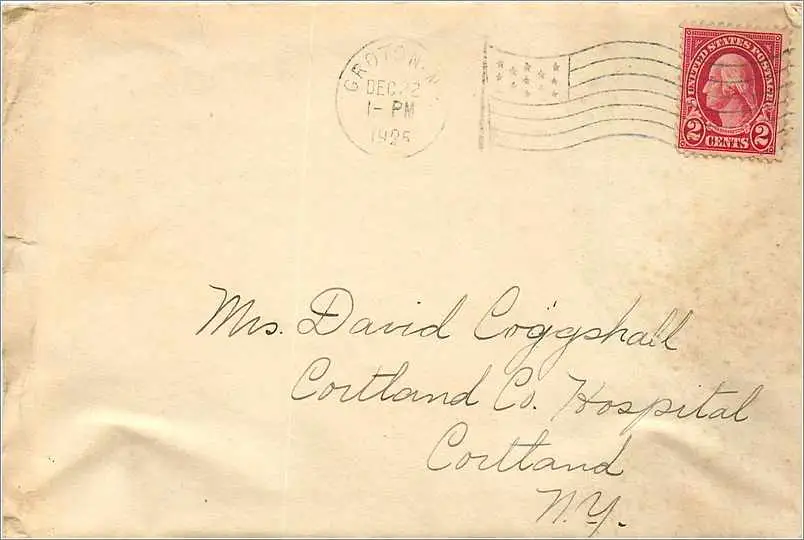 GROTON, N.
DEC 22
1- PM
1925
UNITED STATES POSTAGE
2 CENTS 2
Mrs. David Coggshall
Cortland Co. Hospital
Cortland
N.Y.